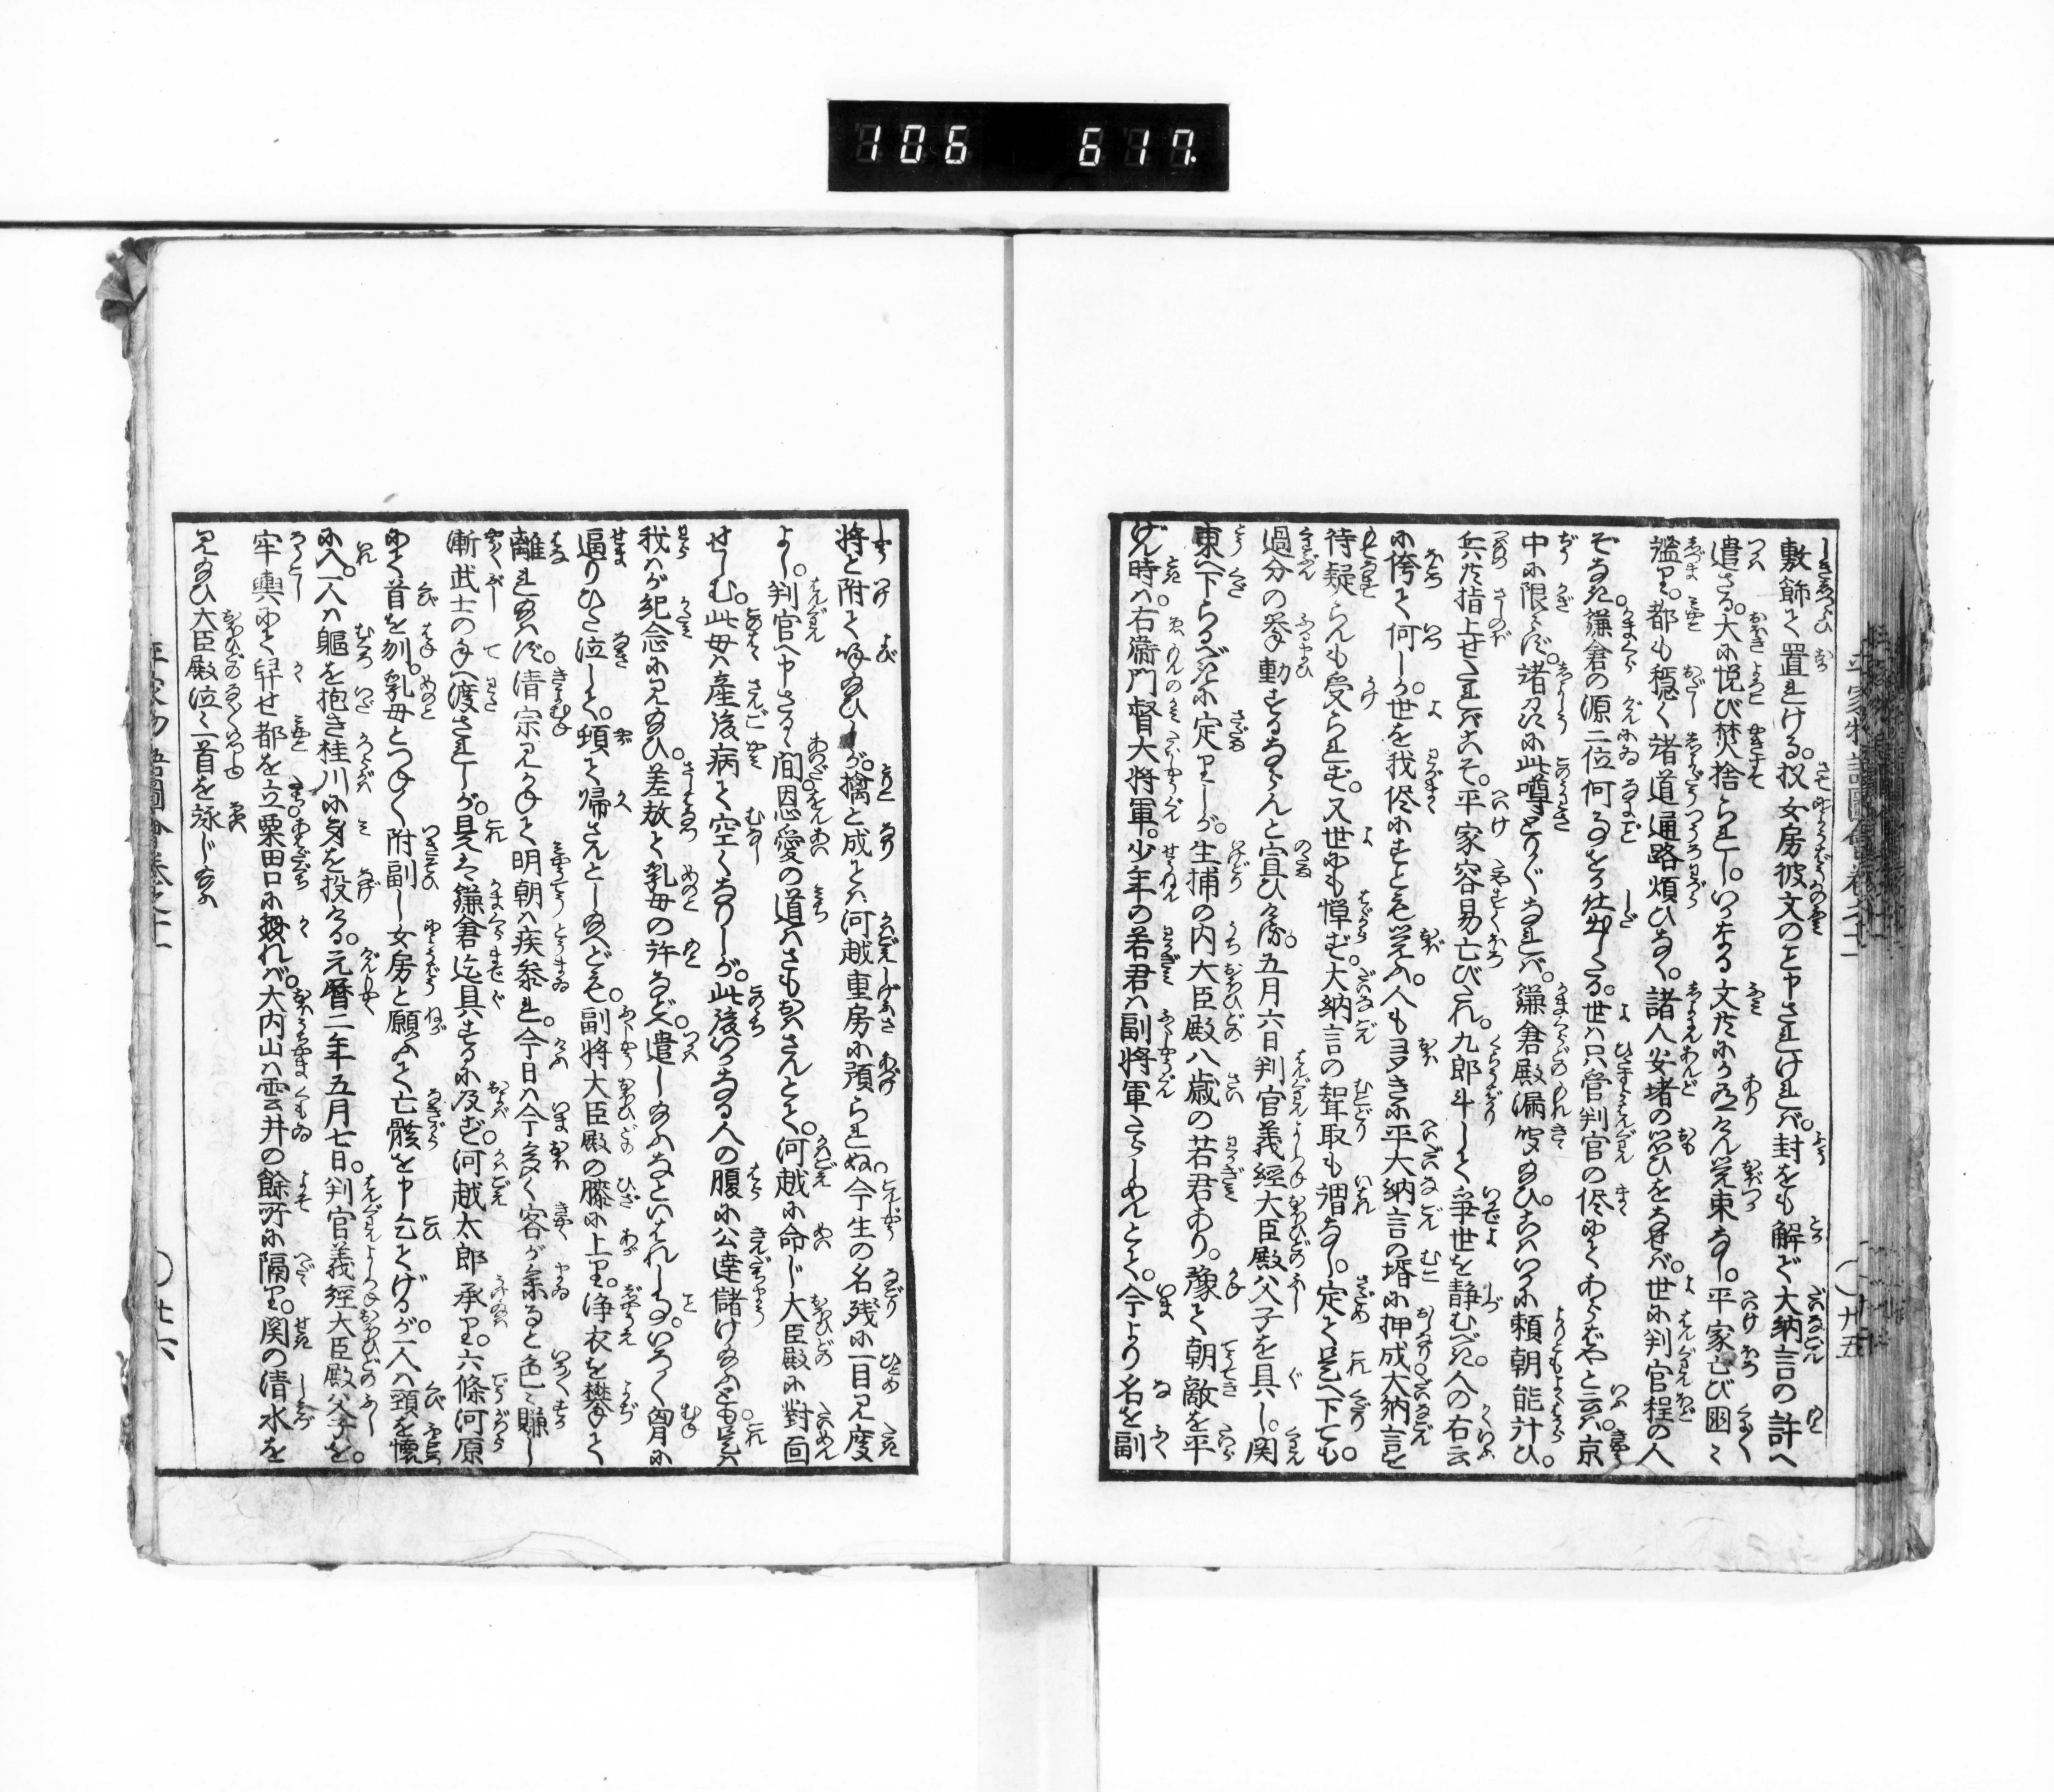 106 617
敷飾て置れける。扨女房彼文のこと申されければ。封をも解で大納言の許へ
遣さる。大に悦び焚捨られし。いかなる文共にか有けん覚束なし。平家亡び国々
鎮り。都も穏く諸道通路煩ひなく。諸人安堵の思ひをなせば。世に判官程の人
ぞなき。鎌倉の源二位何事をか仕出したる。世は只管判官の侭にてあらばやと云は。京
中に限らず。諸国に此噂とり〴〵なれば。鎌倉殿漏聞給ひ。こはいかに頼朝能計ひ。
兵共指上せたればこそ。平家容易亡びたれ。九郎斗して争世を静むべき。人の右云
に侉て何しか。世を我侭にすとも覚ふ。人も多きに平大納言の壻に押成大納言を
待疑らんも受られず。又世にも憚ず。大納言の聟取も謂なし。定て是へ下ても
過分の挙動するならんと宣ひける。五月六日判官義経大臣殿父子を具し。関
東へ下らるべきに定りしが。生捕の内大臣殿八歳の若君あり。豫て朝敵を平
げん時は。右衛門督大将軍。少年の若君は副将軍たらしめんとて。今より名を副
将と附て呼給ひしが。擒と成ては河越重房に預られぬ。今生の名残に一目見度
よし。判官へ申さるゝ間。恩愛の道はさもおはさんとて。河越に命じ大臣殿に対面
せしむ。此母は産後病て空くなりしが。此後いかなる人の腹に公達儲け給ふとも。是は
我が紀念に見給ひ。差放て乳母の許などへ遣し給ふなといはれし事。いかく胸に
逼りひた泣しく。頓て帰さんとし給へども。副将大臣殿の膝に上り。浄衣を攀て
離れ給はず。清宗見かねて明朝は疾参れ。今日は今多く客が来ると色々賺し
漸武士の手へ渡されしが。是を鎌倉迄具するに及ず。河越太郎承り。六條河原
にて首を刎。乳母とつねく附副し女房と願ふて。亡骸を申乞てげるが。一人は頸を懐
に入。一人は軀を抱き桂川に身を投ける。元暦二年五月七日。判官義経大臣殿父子を。
牢輿にて舁せ都を立。粟田口に懸れば。大内山は雲井の餘所に隔り。関の清水を
見給ひ大臣殿泣々一首を詠じ給ふ
平家物語図会巻之十一
〇廿五
平家物語図会巻之十一
〇廿六